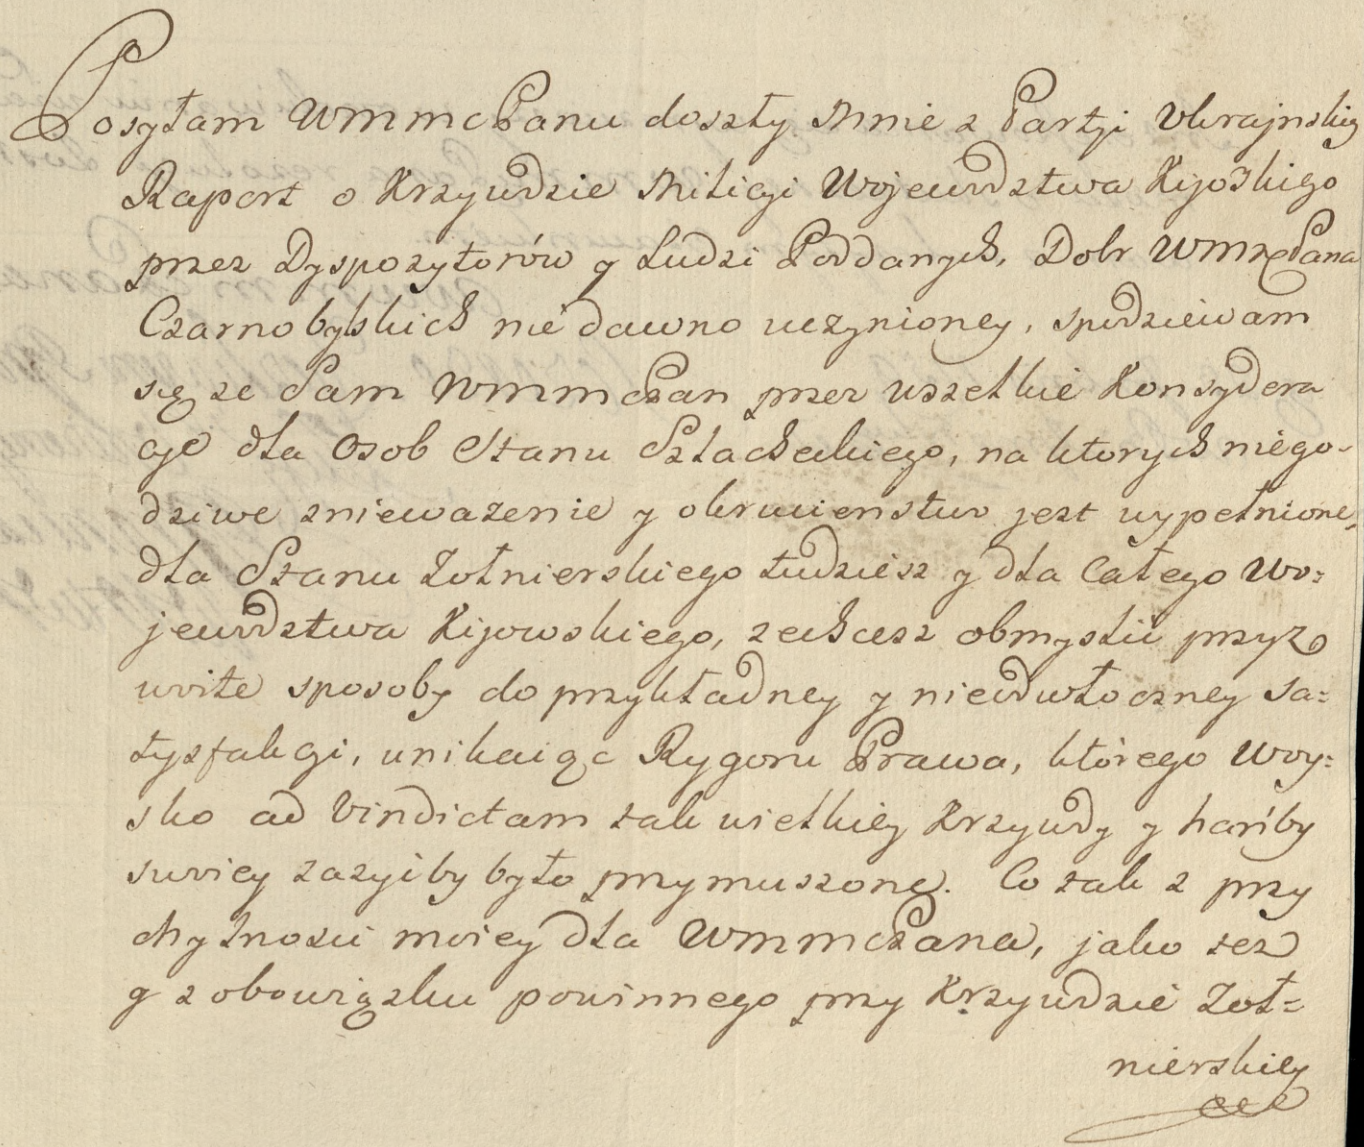 Posyłam WMMcPanu doszły Mnie z Partyi Ukrajnskiey
Raport o Krzywdzie Milicyi Wojewodztwa Kijoskiego
przez Dyspozytorów y Ludzi Poddanych, Dobr WMMcPana
Czarnobylskich nie dawno uczynioney, spodziewam
się ze Sam WMMcPan przez wszelkie Konsydera
cje dla Osob Stanu Szlacheckiego, na ktorych niego-
dziwe zniewazenie y okrucienstwo jest wypełnione,
dla Stanu Zołnierskiego tudziesz y dla Całego Wo=
jewodztwa Kijowskiego, zechcesz obmyslić przyzo
wite sposoby do przykładney y nieodwłoczney Sa=
tysfakcyi, unikaiąc Rygoru Prawa, którego Woy=
sko ad Vindictam tak wielkiey Krzywdy y hańby
swoiey zazyiby było przymuszone. Co tak z przy
chylnosci moiey dla WMMcPana, jako tez
y z obowiązku powinnego przy Krzywdzie Zoł=
nierskiey